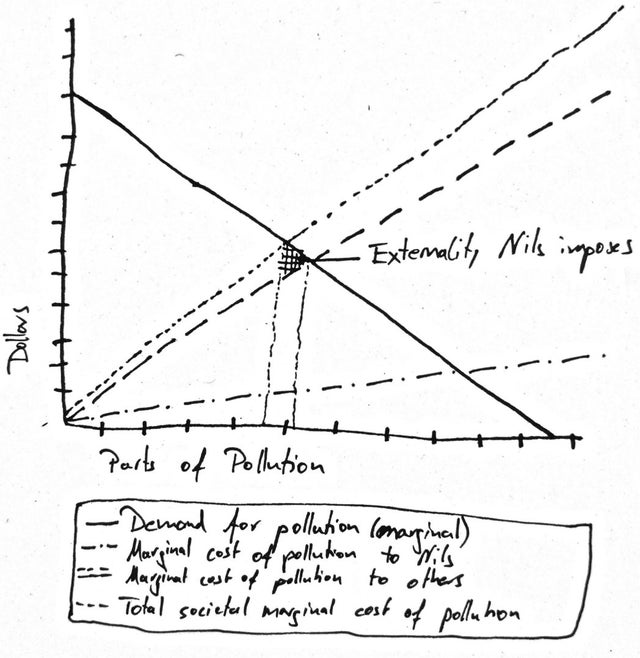 Externality Nils imposes
Dollars
Parts of Pollution
Demand for pollution (marginal)
Marginal cost of pollution to Nils
Marginal cost of pollution to others
Total societal marginal cost of pollution